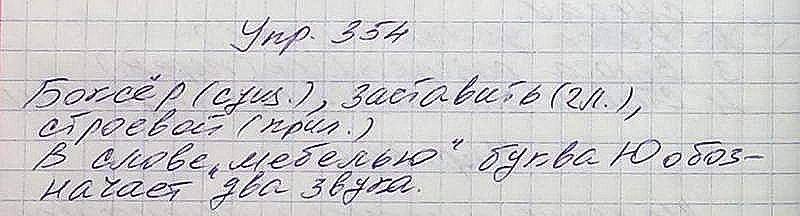 Упр. 354
Боксёр (сущ.), заставить (гл.),
строевой (прил.)
В слове „мебелью" буква Ю обоз-
начает два звука.